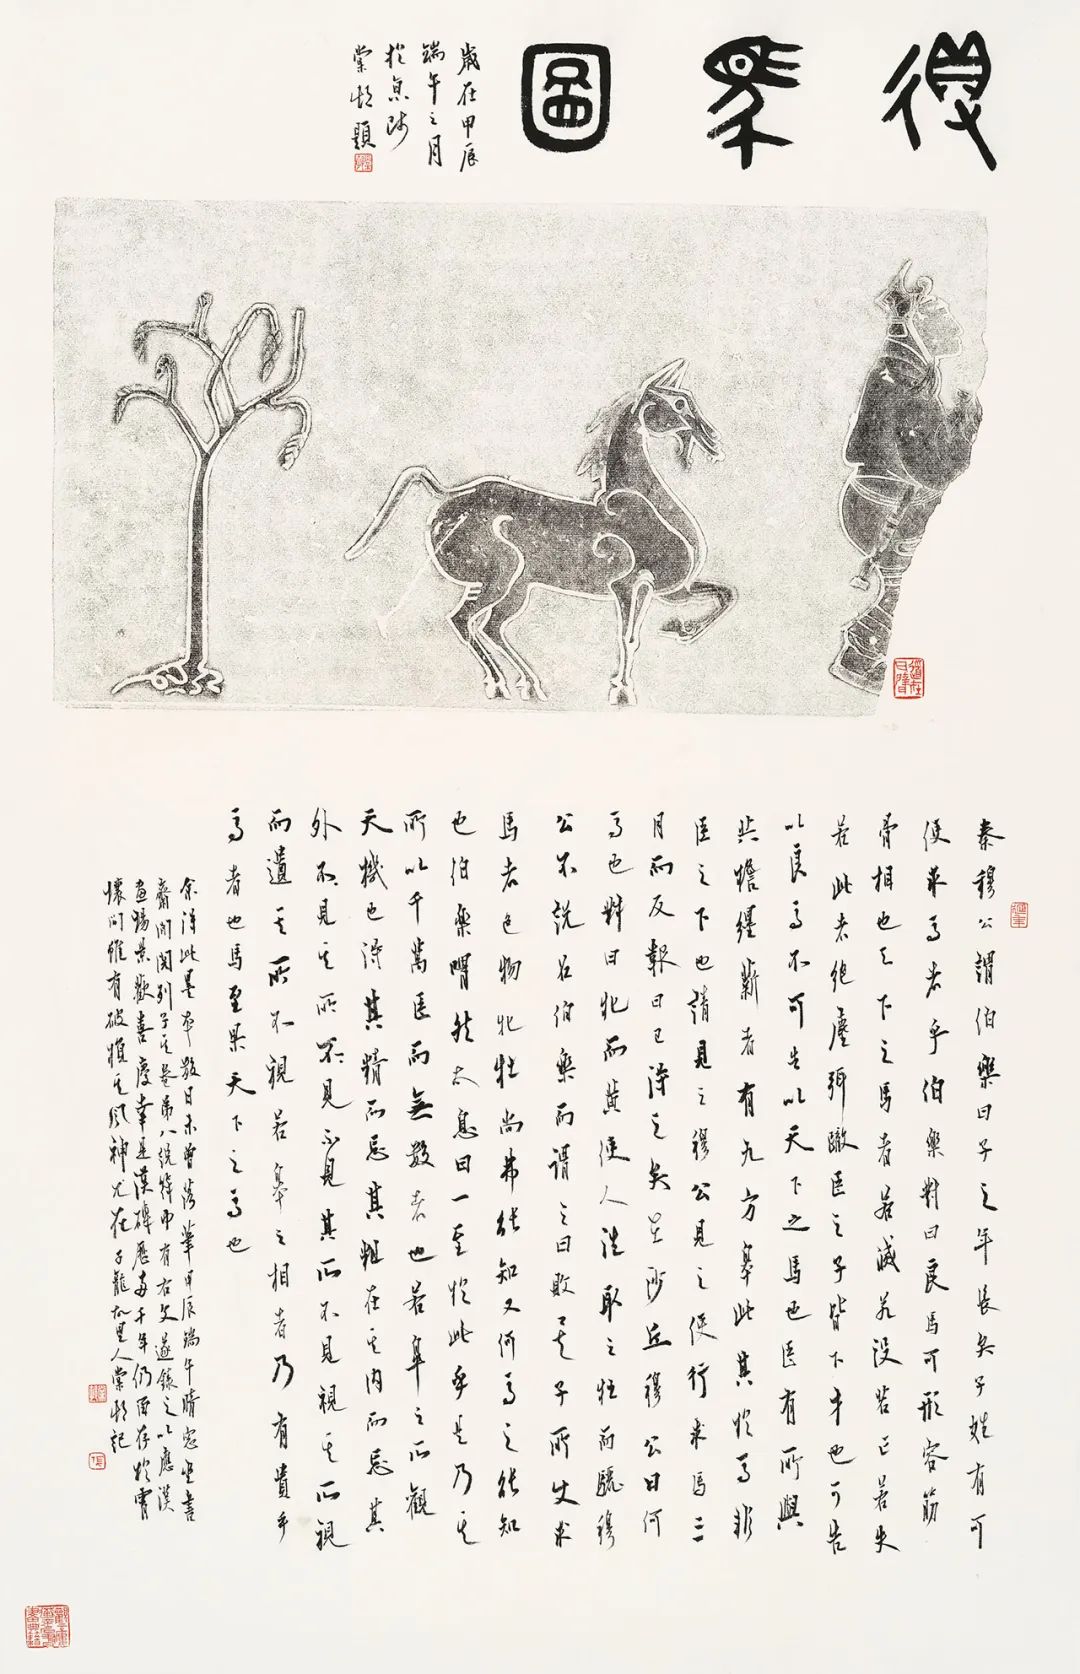 得馬圖
歲在甲辰
端午之月
於京師
題
秦穆公謂伯樂曰子之年長矣子姓有可
使求馬者乎伯樂對曰良馬可形容筋
骨相也天下之馬者若滅若没若亡若失
若此者絶塵弭轍臣之子皆下才也可告
以良馬不可告以天下之馬也臣有所與
共擔纆薪者有九方皋此其於馬非
臣之下也請見之穆公見之使行求馬三
月而反報曰已得之矣在沙丘穆公曰何
馬也對曰牝而黃使人往取之牡而驪穆
公不說召伯樂而謂之曰敗矣子所使求
馬者色物牝牡尚弗能知又何馬之能知
也伯樂喟然太息曰一至於此乎是乃其
所以千萬臣而無數者也若皋之所觀
天機也得其精而忘其粗在其內而忘其
外不見其所不見不見其所不見視其所視
而遺其所不視若皋之相者乃有貴乎
馬者也馬至果天下之馬也
余得此墨本數日未曾落筆甲辰端午晴窗坐書
齋間閱列子其卷第八說符中有右文遂錄之以應漢
畫場景歡喜慶幸是漢磚歷兩千年仍留存於
懷間雖有破損其風神尤在子龍故里人記